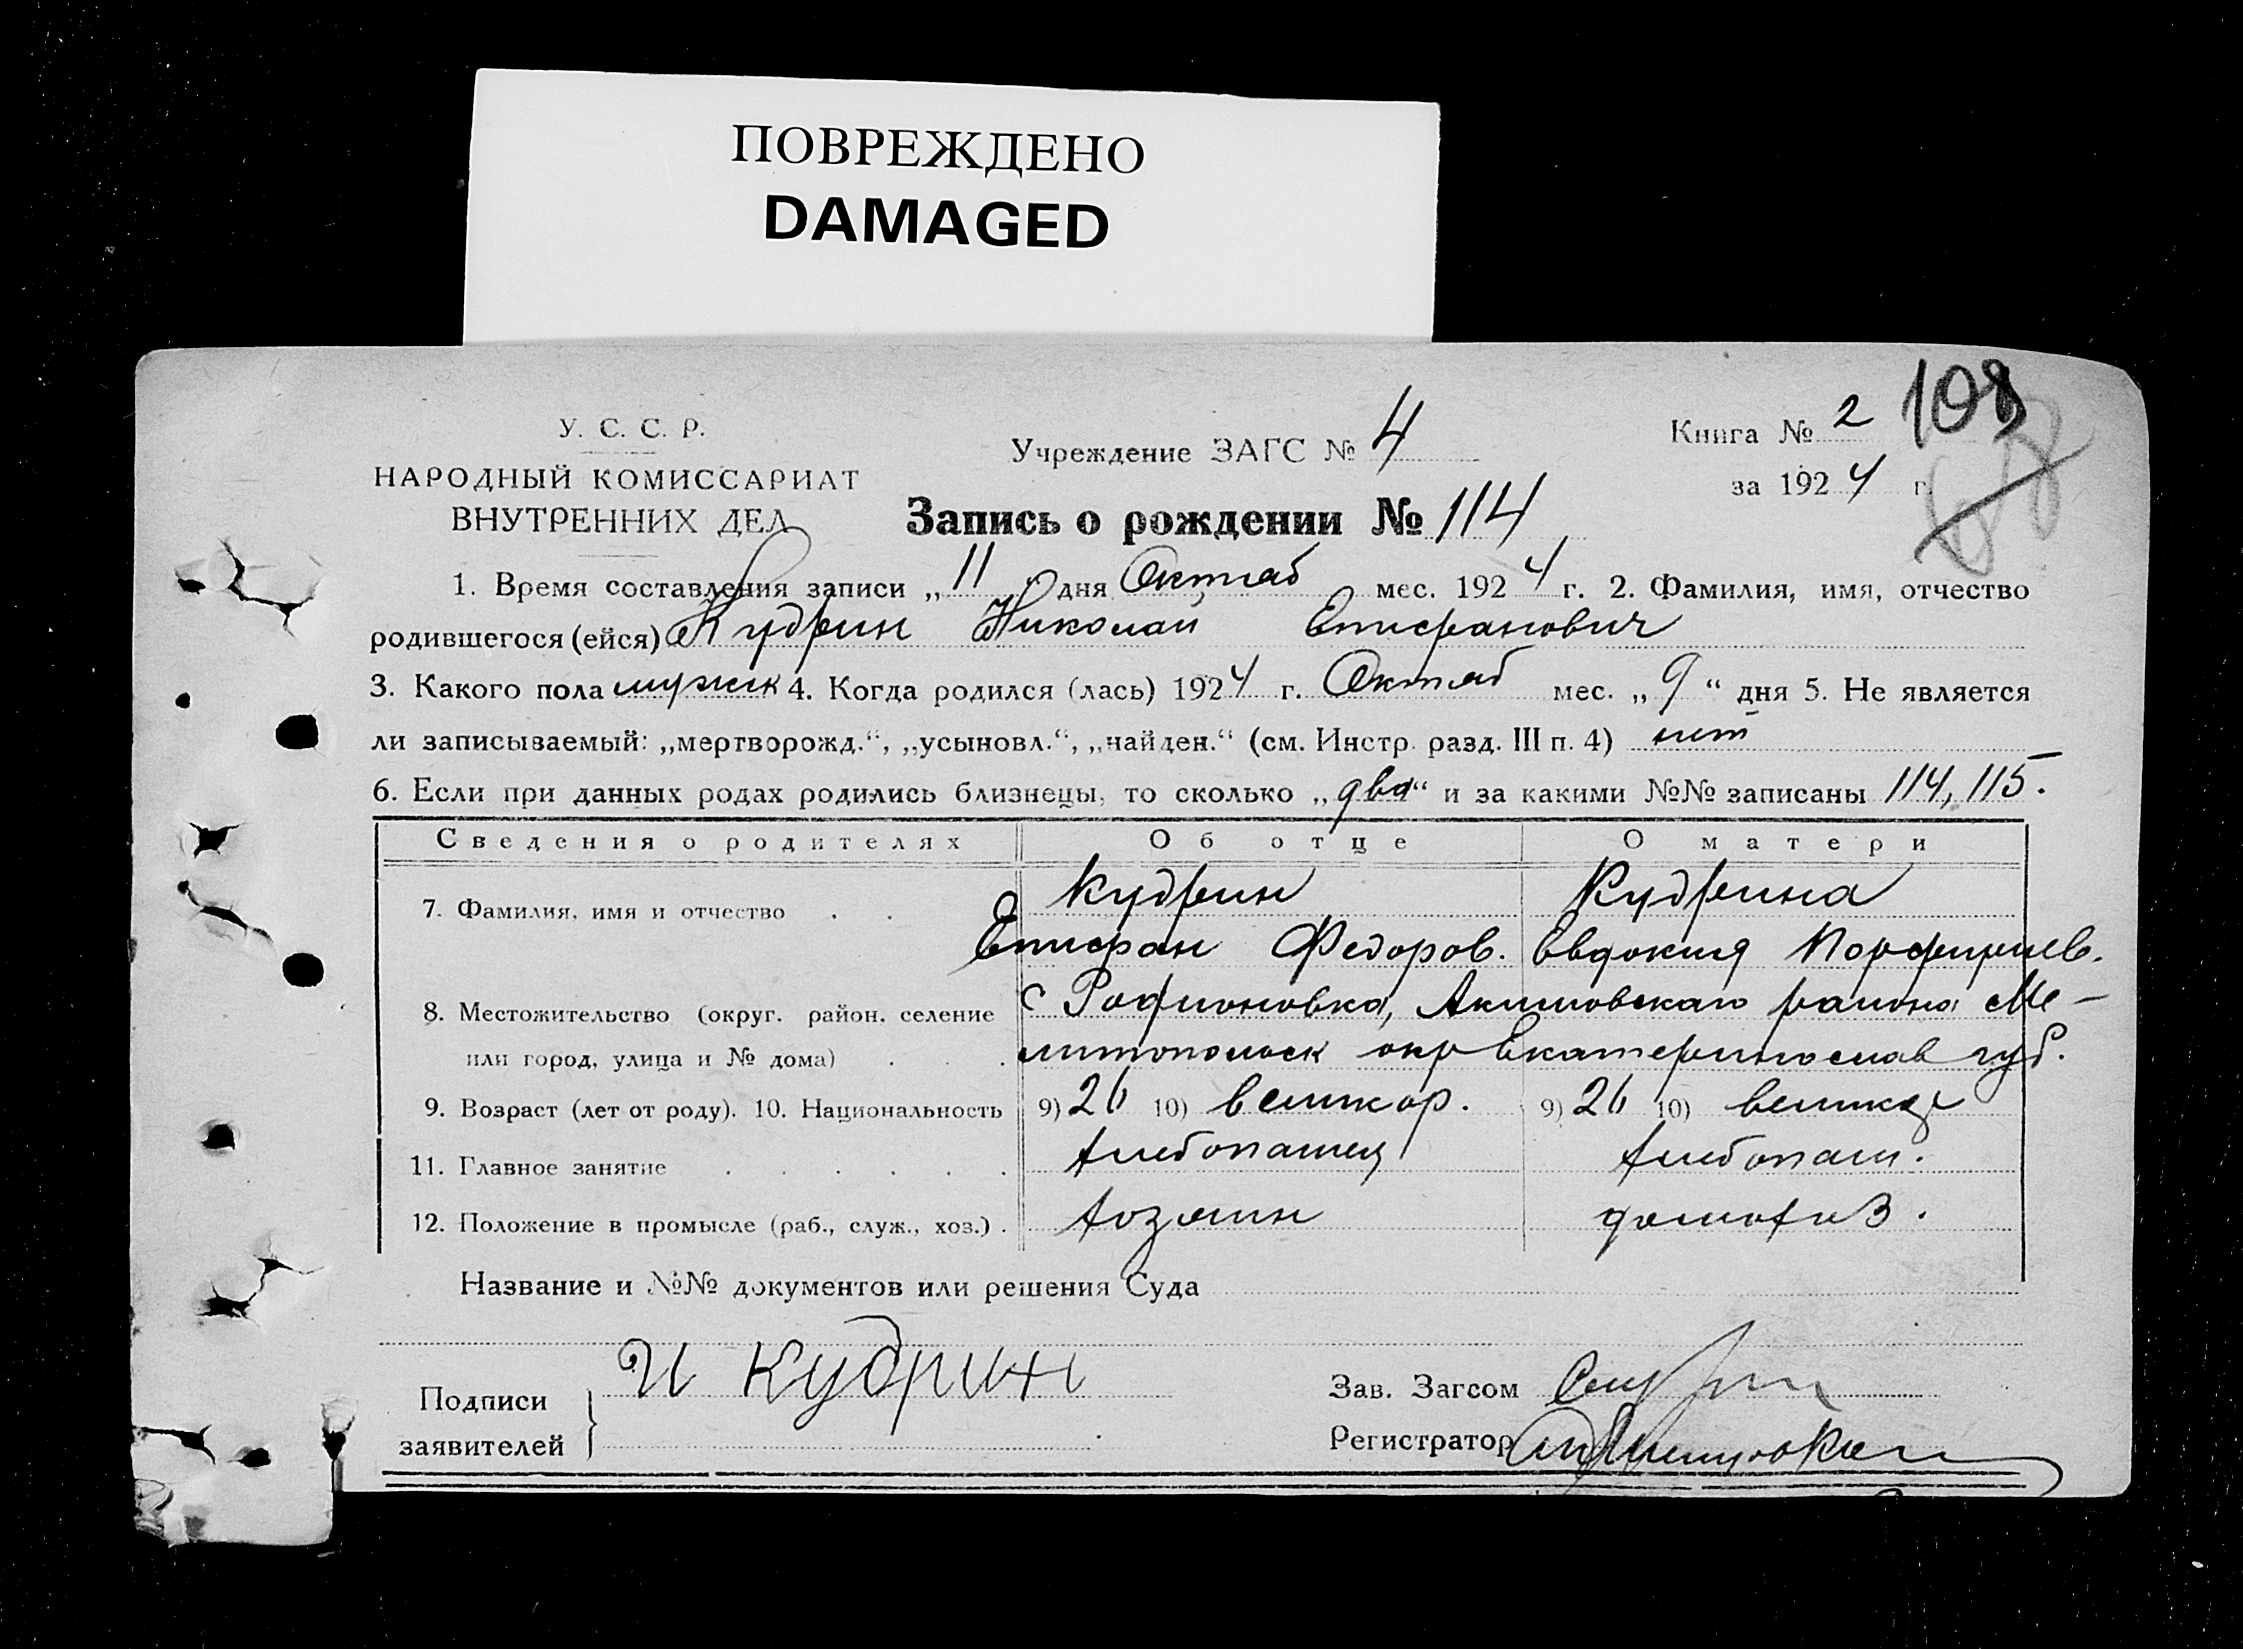 ПОВРЕЖДЕНО
DAMAGED
У. С. С. Р.
НАРОДНЫЙ КОМИССАРИАТ
ВНУТРЕННИХ ДЕЛ
Учреждение ЗАГС № 4
Запись о рождении № 114
Книга № 2 108
за 1924 г.
1. Время составления записи „11 дня Октяб мес. 1924 г. 2. Фамилия, имя, отчество
родившегося (ейся) Кудрин Николай Епифанович
3. Какого пола мужск 4. Когда родился (лась) 1924 г. Октяб мес. „9“ дня 5. Не является
ли записываемый: „мертворожд.“, „усыновл.“, „найден.“ (см. Инстр. разд. III п. 4) нет
6. Если при данных родах родились близнецы, то сколько „два“ и за какими №№ записаны 114, 115.
Сведения о родителях Об отце О матери
7. Фамилия, имя и отчество . . Кудрин Кудрина
Епифан Федоров. Евдокия Порфириев.
8. Местожительство (округ. район. селение с Родионовка, Акимовскаго района Ме-
или город, улица и № дома) . . . литопольск окр Екатеринослав губ.
9. Возраст (лет от роду). 10. Национальность 9) 26 10) великор. 9) 26 10) великор
11. Главное занятие . . . . . . хлебопашец хлебопаш.
12. Положение в промысле (раб., служ., хоз.) . хозяин домохоз.
Название и №№ документов или решения Суда
Подписи
заявителей
И Кудрин
Зав. Загсом
Регистратор